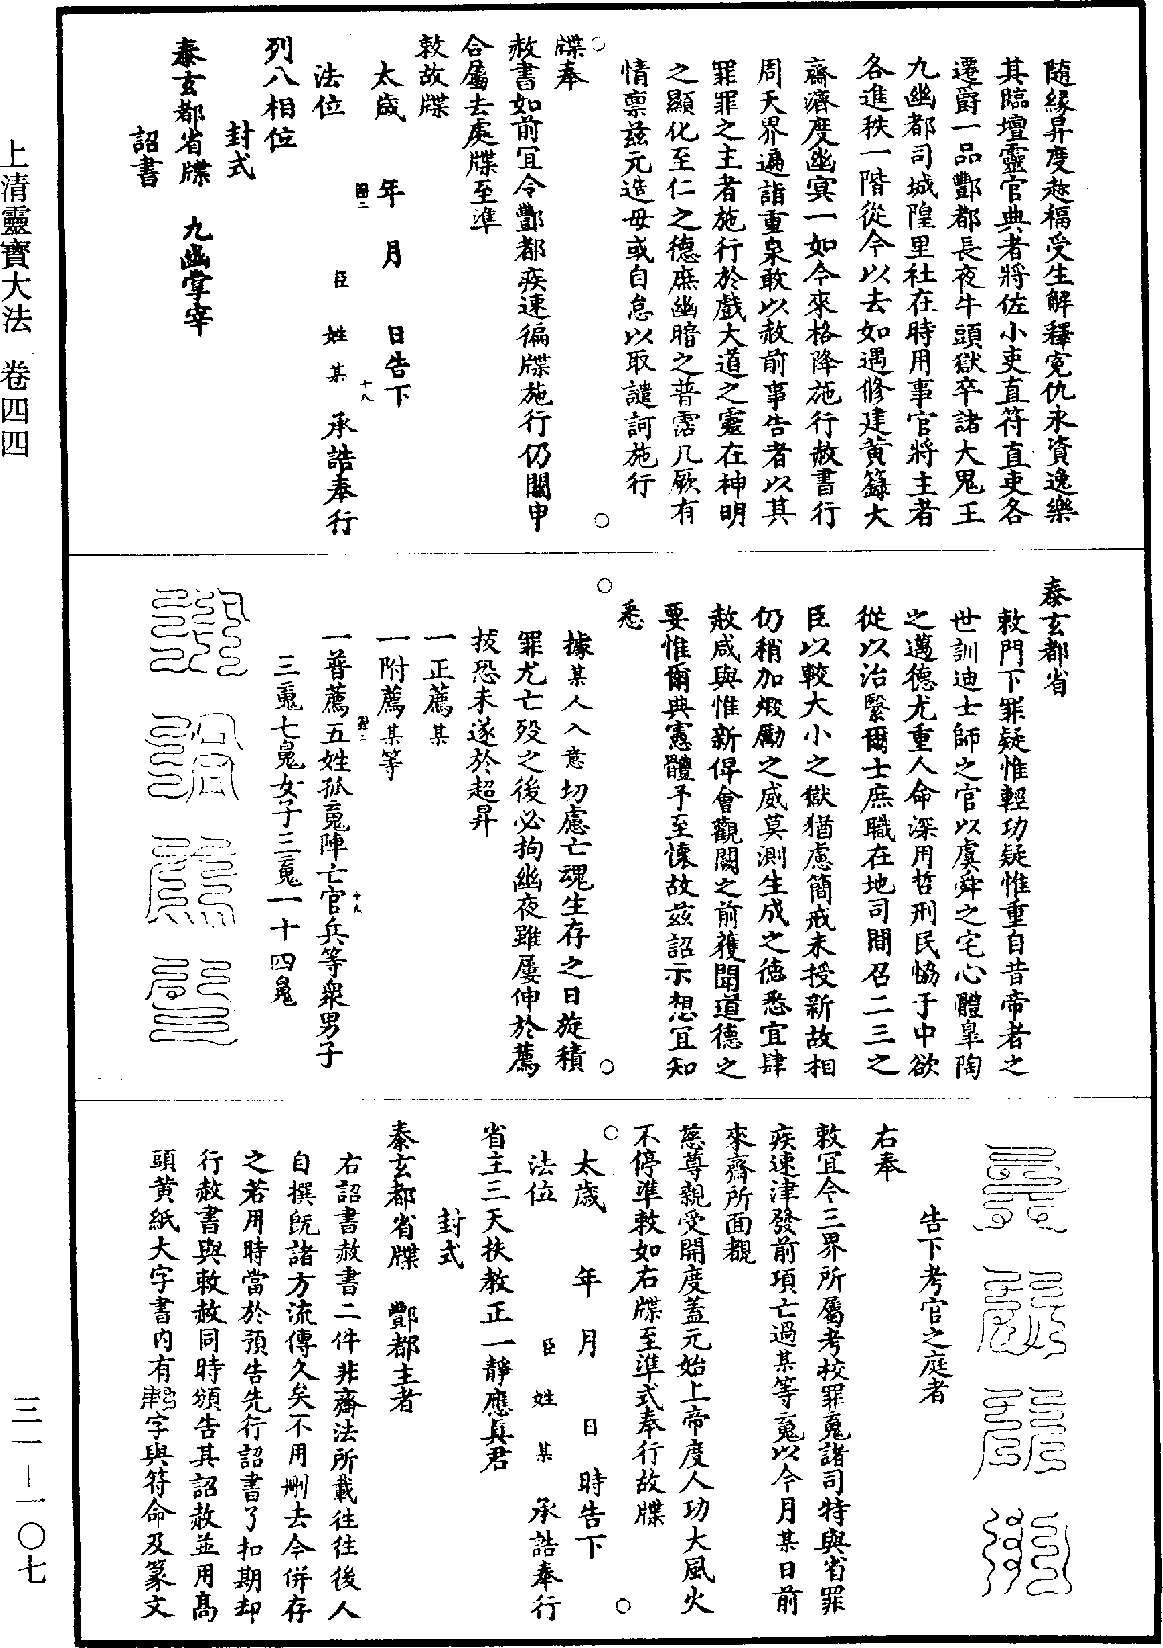 隨緣昇度趂福受生解釋寃仇永資逸樂
其臨壇靈官典者將佐小吏直符直吏各
遷爵一品酆都長夜牛頭獄卒諸大鬼王
九幽都司城隍里社在時用事官將主者
各進秩一階從今以去如遇修建黃籙大
齋濟度幽冥一如今來格降施行赦書行
周天界遍詣重泉敢以赦前事告者以其
罪罪之主者施行於戲大道之靈在神明
之顯化至仁之德庶幽暗之普霑凡厥有
情禀兹元造毋或自怠以取譴訶施行
牒奉
赦書如前宜令酆都疾速徧牒施行仍關申
合屬去處牒至準
敕故牒
太歲 年 月 日告下
法位 臣 姓 某 承誥奉行
列八相位
封式
泰玄都省牒 九幽掌宰
詔書
泰玄都省
敕門下罪疑惟輕功疑惟重自昔帝者之
世訓迪士師之官以虞舜之宅心體臯陶
之邁德尤重人命深用哲刑民恊于中欲
從以治緊爾士庶職在地司間召二三之
臣以較大小之獄猶慮簡戒未授新故相
仍稍加煅勵之威莫測生成之德悉宜肆
赦咸與惟新俾會觀闕之前獲聞道德之
要惟爾典憲體予至懷故兹詔示想宜知
悉
據某人入意切慮亡魂生存之日旋積
罪尤亡歿之後必拘幽夜雖屢伸於薦
拔恐未遂於超昇
一正薦某
一附薦某等
一普薦五姓孤䰟陣亡官兵等衆男子
三䰟七䰟女子三䰟一十四䰟
告下考官之庭者
右奉
敕宜令三界所屬考校罪䰟諸司特與省罪
疾速津發前項亡過某等䰟以今月某日前
來齋所面覩
慈尊親受開度蓋元始上帝度人功大風火
不停準敕如右牒至準式奉行故牒
太歲 年 月 日 時告下
法位 臣 姓 某 承誥奉行
省主三天扶教正一靜應眞君
封式
泰玄都省牒 酆都主者
右詔書赦書二件非齋法所載往往後人
自撰旣諸方流傳久矣不用刪去今併存
之若用時當於預告先行詔書了扣期却
行赦書與敕赦同時頒告其詔赦並用高
頭黃紙大字書內有字與符命及篆文
上清靈寶大法 卷四四
三一－一〇七